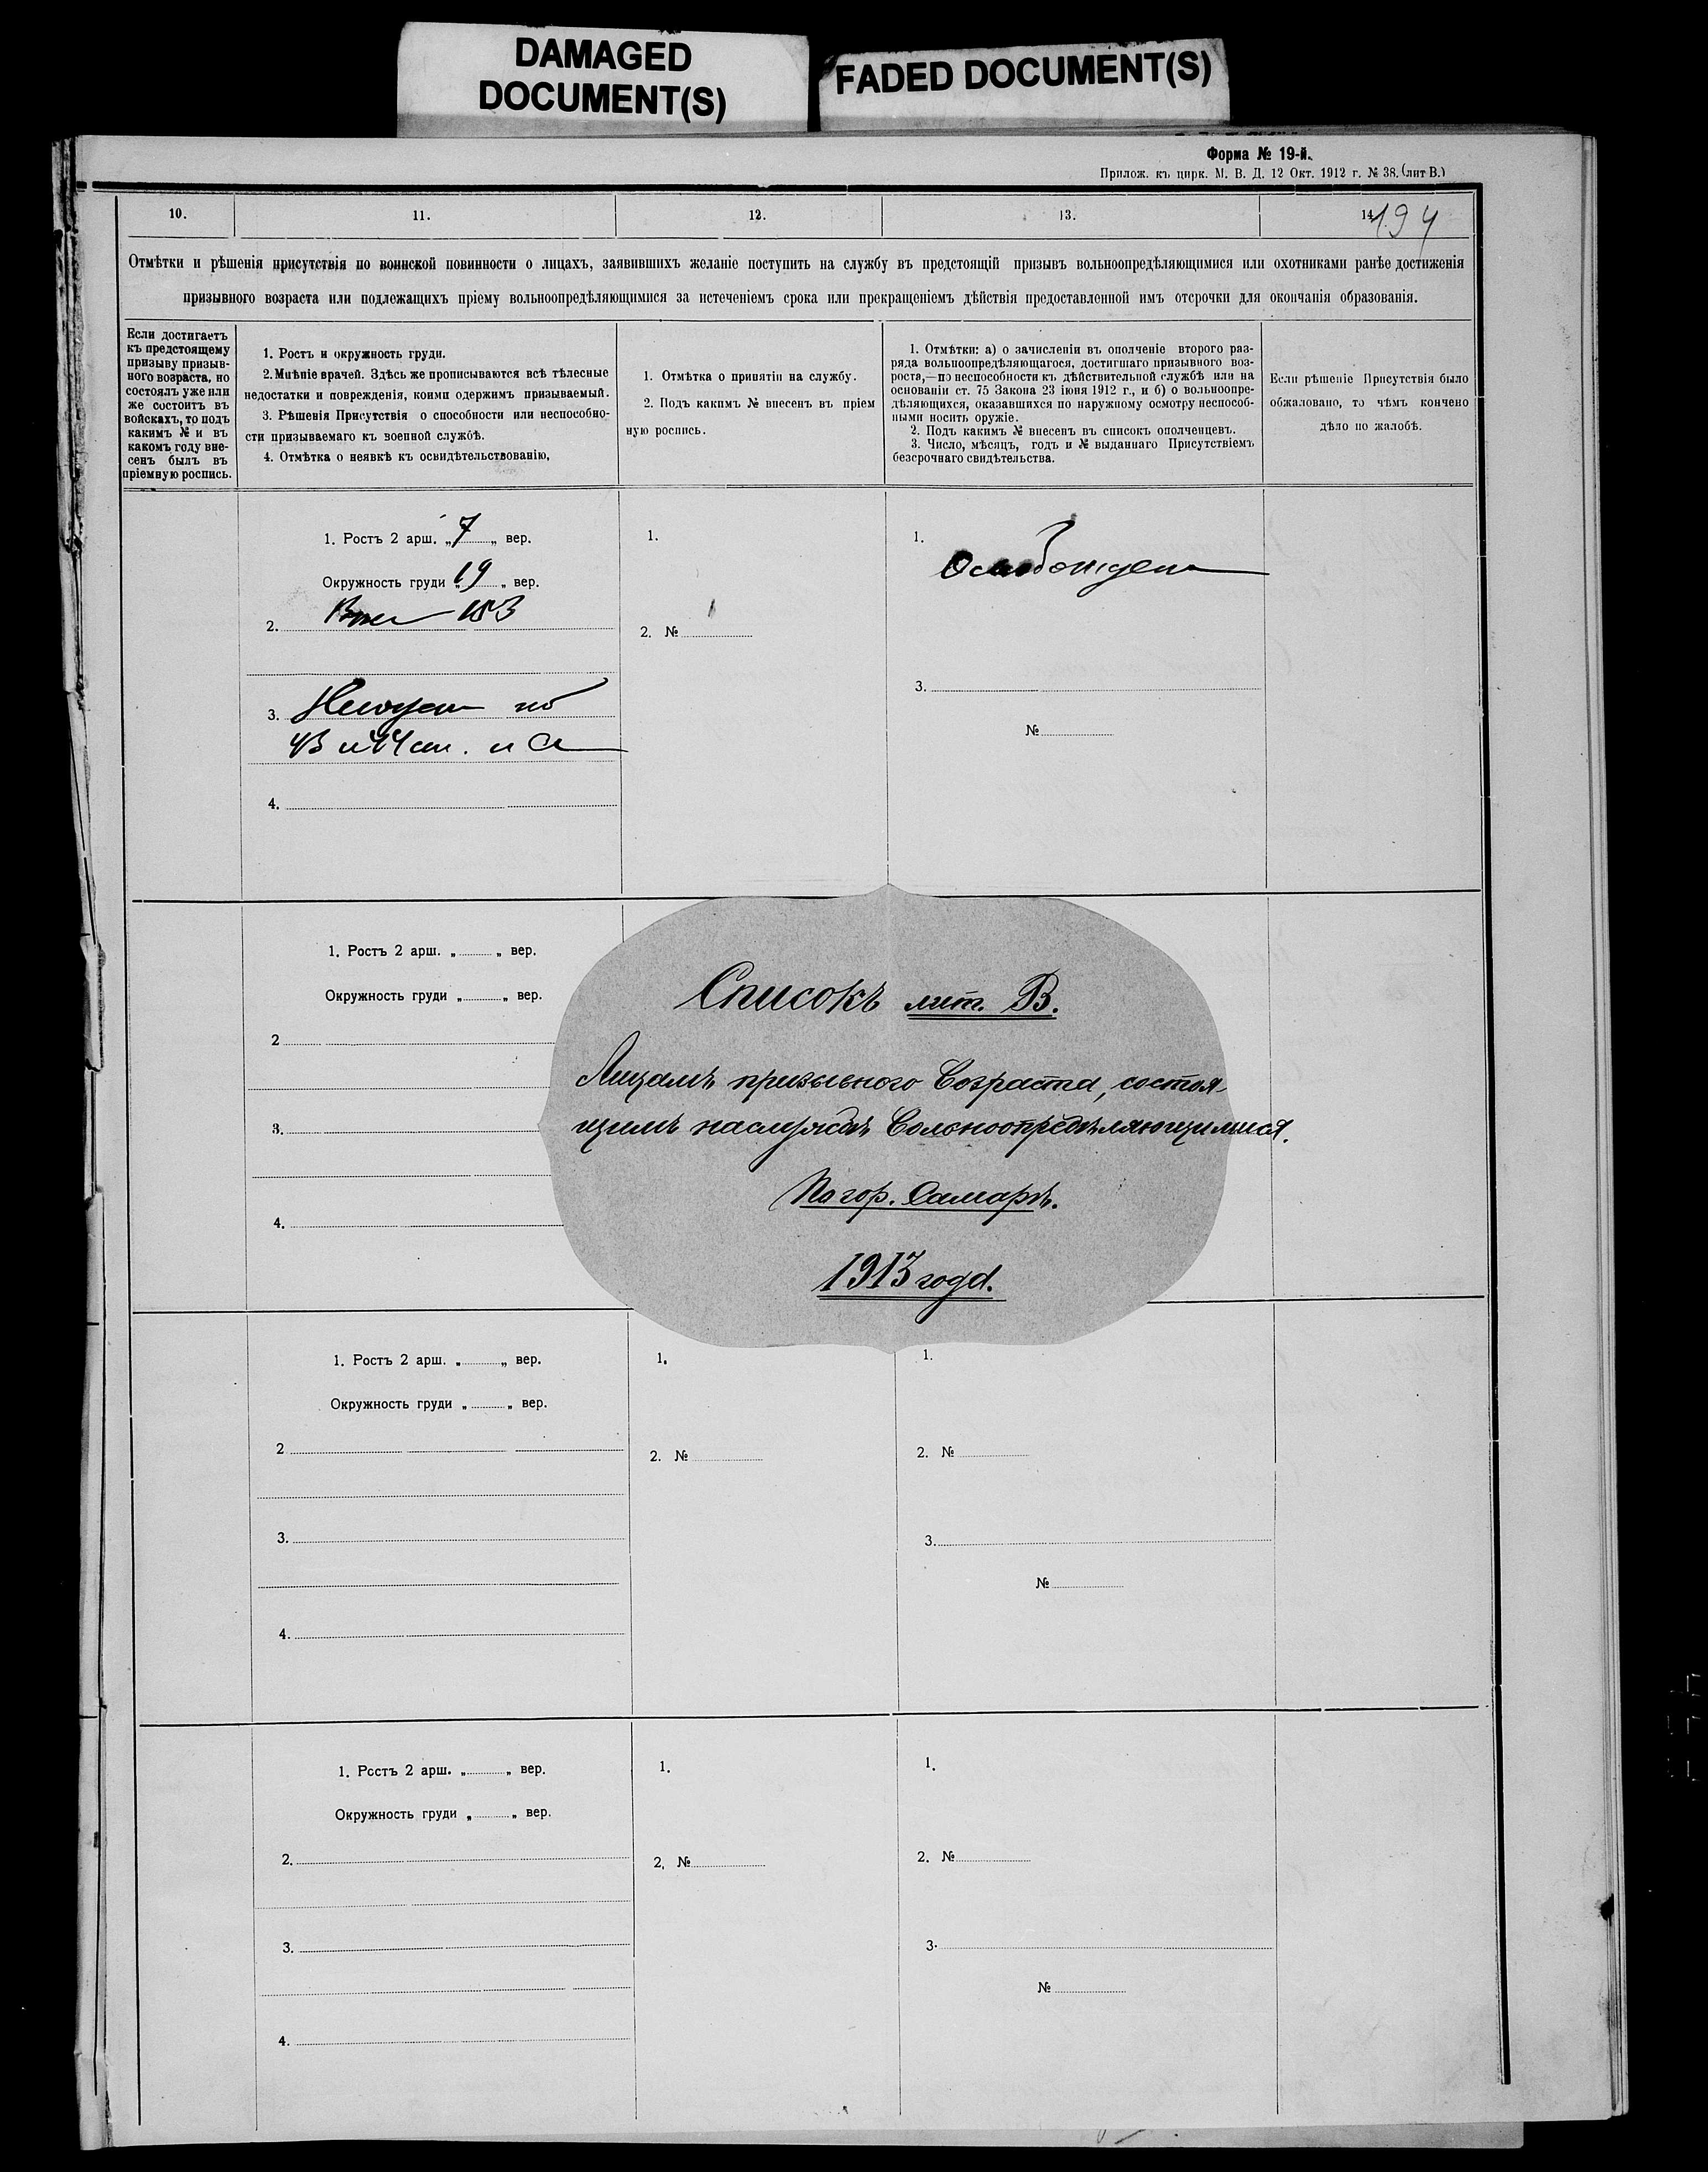 DAMAGED
DOCUMENT(S)
FADED DOCUMENT(S)
Форма № 19-й.
Прилож. къ цирк. М. В. Д. 12 Окт. 1912 г. № 38. (лит В.)
10. 11. 12. 13. 14.
194
Отмѣтки и рѣшенія присутствія по воинской повинности о лицахъ, заявившихъ желаніе поступить на службу въ предстоящій призывъ вольноопредѣляющимися или охотниками ранѣе достиженія
призывного возраста или подлежащихъ пріему вольноопредѣляющимися за истеченіемъ срока или прекращеніемъ дѣйствія предоставленной имъ отсрочки для окончанія образованія.
Если достигаетъ
къ предстоящему
призыву призыв-
ного возраста, но
состоялъ уже или
же состоитъ въ
войскахъ, то подъ
какимъ № и въ
какомъ году вне-
сенъ былъ въ
пріемную роспись.
1. Ростъ и окружность груди.
2. Мнѣніе врачей. Здѣсь же прописываются всѣ тѣлесные
недостатки и поврежденія, коими одержимъ призываемый.
3. Рѣшенія Присутствія о способности или неспособно-
сти призываемаго къ военной службѣ.
4. Отмѣтка о неявкѣ къ освидѣтельствованію,
1. Отмѣтка о принятіи на службу.
2. Подъ какимъ № внесенъ въ пріем
ную роспись.
1. Отмѣтки: а) о зачисленіи въ ополченіе второго раз-
ряда вольноопредѣляющагося, достигшаго призывного воз-
роста,—по неспособности къ дѣйствительной службѣ или на
основаніи ст. 75 Закона 23 іюня 1912 г., и б) о вольноопре-
дѣляющихся, оказавшихся по наружному осмотру неспособ-
ными носить оружіе.
2. Подъ какимъ № внесенъ въ списокъ ополченцевъ.
3. Число, мѣсяцъ, годъ и № выданнаго Присутствіемъ
безсрочнаго свидѣтельства.
Если рѣшеніе Присутствія было
обжаловано, то чѣмъ кончено
дѣло по жалобѣ.
1. Ростъ 2 арш. „7„ вер.
Окружность груди „19„ вер.
2. 153
3. Негоденъ по
43 и 44 ст. и А
4.
1.
2. №
1. Освобожденъ
3.
№
1. Ростъ 2 арш. „ „ вер.
Окружность груди „ „ вер.
2
3.
4.
Списокъ лит. В.
Лицамъ призывного возраста, состоя-
щимъ на службѣ вольноопредѣляющимися.
По гор. Самарѣ.
1913 года.
1. Ростъ 2 арш. „ „ вер.
Окружность груди „ „ вер.
2
3.
4.
1.
2. №
1.
2. №
3.
№
1. Ростъ 2 арш. „ „ вер.
Окружность груди „ „ вер.
2.
3.
4.
1.
2, №
1.
2. №
3.
№